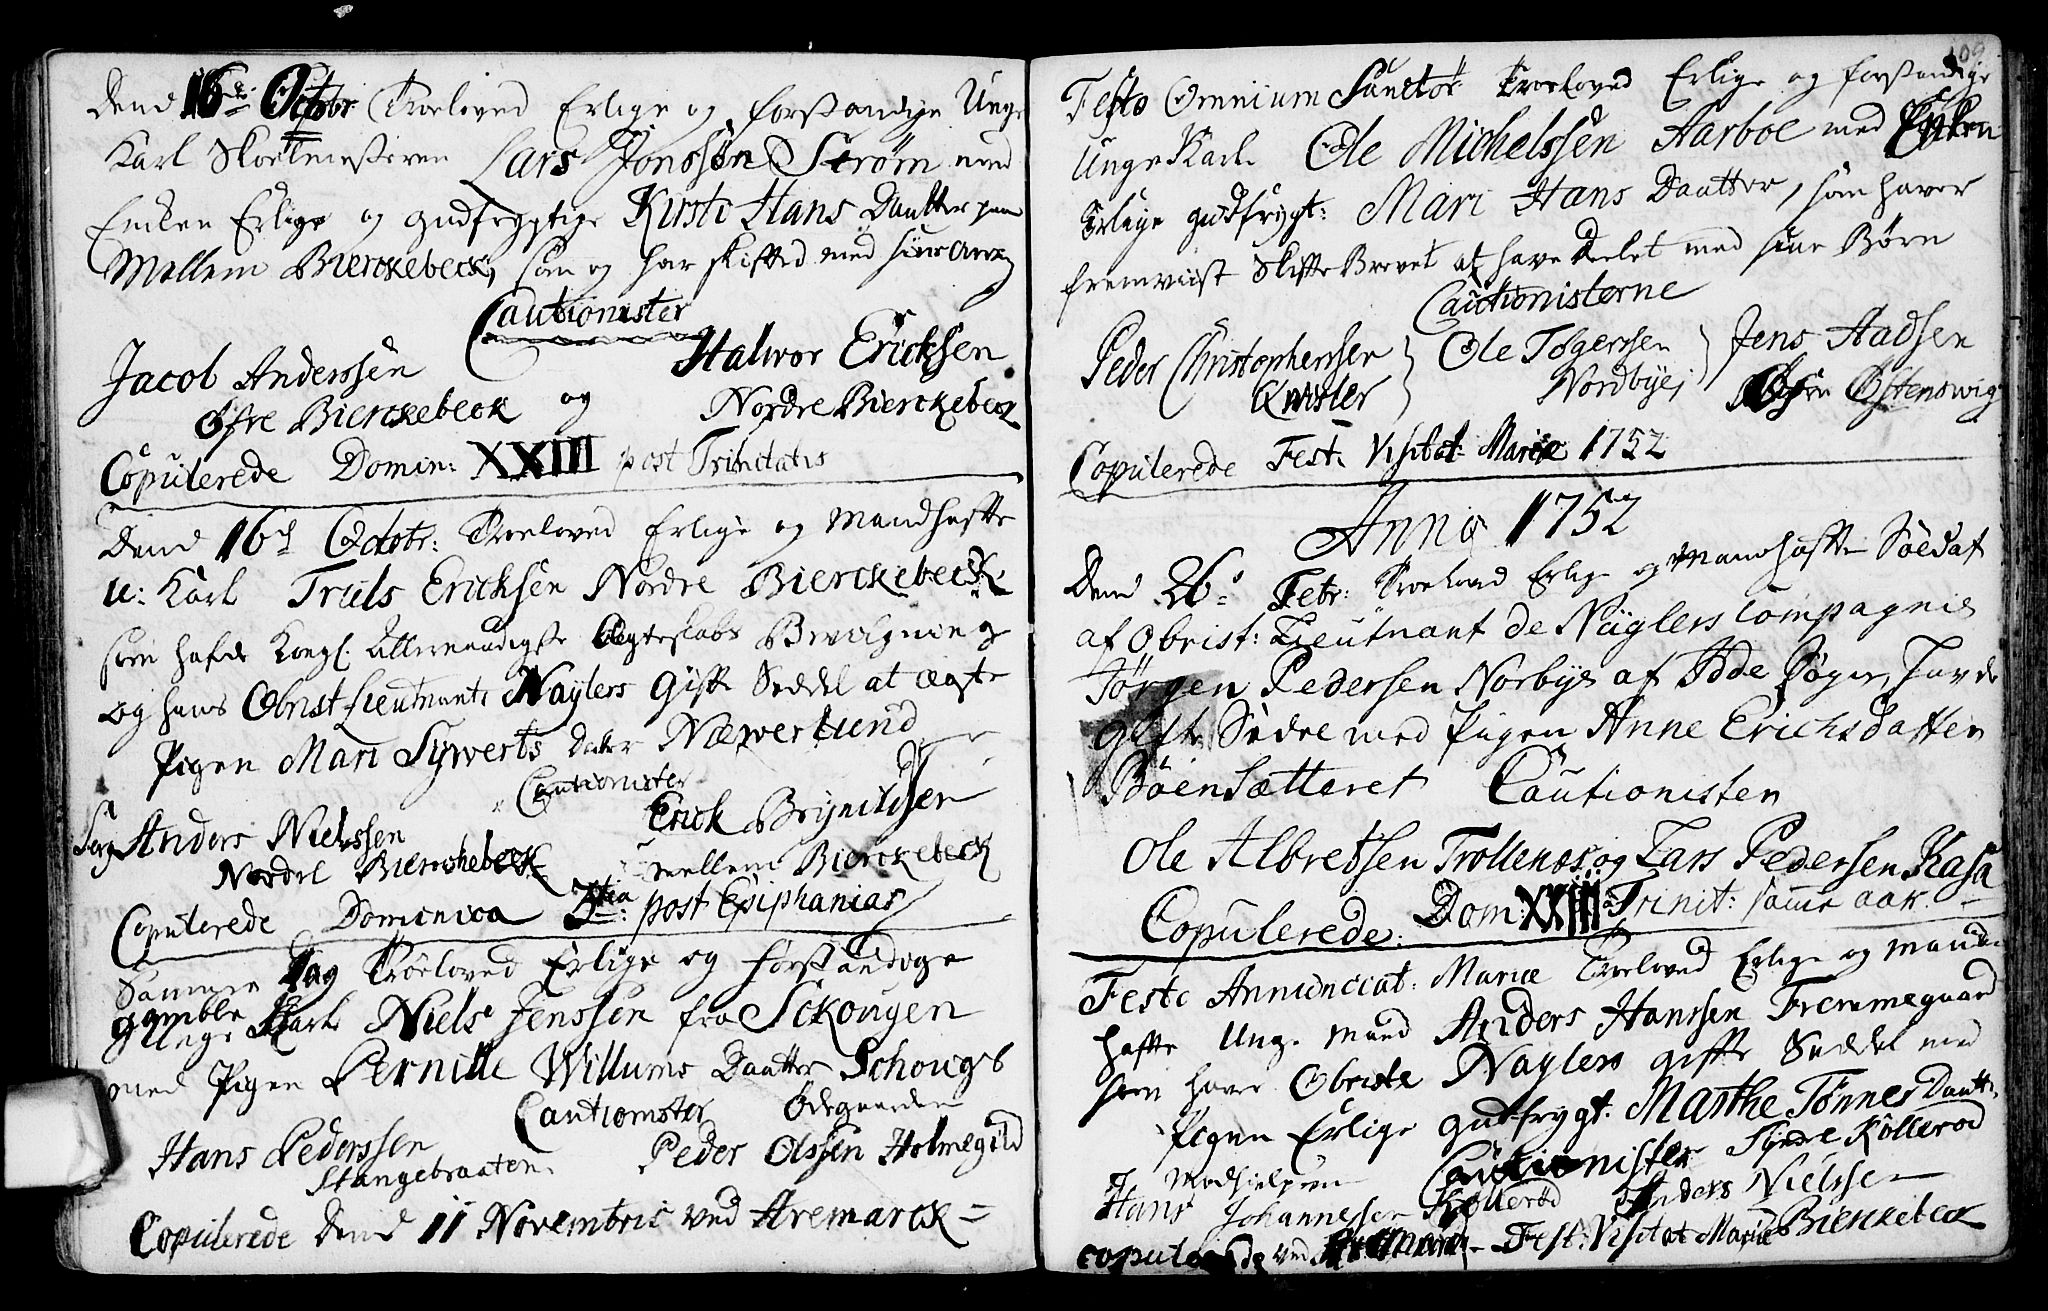 Dend 16de Octobr Troeloved Erlige og forstandige Unge
Karl Skoelmesteren Lars Jonssøn Strøm med
Encken Erlige og gudfrygtige Kirsti Hans Daatter paa
Mellem Bierckebeck, som og har skifted med sine
Cautionister
Jacob Anderssen Halwor Ericksen
Øfre Bierckebeck og Nordre Bierckebeck
Copulerede Domin: XXIII post Trinitatis
Dend 16d Octobr: Troeloved Erlige og Mandhafte
u: Karl Truls Ericksen Nordre Bierckebeck
som hafde Kongl: Allernaadigste Ægteskabs Bevilgning
og hans Obrist Lieutnants Naylers Gifte Seddel at ægte
Pigen Mari Sywerts Datter Næwerlund
Cautionister
Serg Anders Nielssen Erick Brynildsen
Nordre Bierckebeck mellem Bierckebeck
Copulerede Dominica 3tia: post Epiphanias
Samme Dag Troeloved Erlige og forstandige
gamble
Unge Karl Niels Jenssen fra Sckougen
med Pigen Pernille Willums Daatter Schougs
Cautionister Ødegaarden
Hans Pederssen Peder Olssen Holmegild
Stangebraaten
Copulerede Dend 11 Novembris ved Aremarck
109
Festo Omnium Sanctor Troeloved Erlige og forstandige
Unge Karl Ole Michelssen Aarboe med Encken
Erlige gudfrygt: Mari Hans Daatter, som haver
fremviist Skifte Brevet at have deelet med sine Børn
Cautionisterne
Peder Christopherssen Ole Tøgerssen Jens Aadsen
Qwisler Nordbye Østenswig
Copulerede Fest: Visitat: Mariæ 1752
Anno 1752
Dend 26: Febr: Troeloved Erlig og Mandhafte Soldat
af Obrist: Lieutnant de Näylers Compagnie
Jörgen Pedersen Norbye af Idde Sogn, havde
Gifte Sedel med Pigen Anne Erichsdatter
Böensætteret Cautionister
Ole Albretsen Trollenes og Lars Pedersen Kasa
Copulerede: Dom: XXIII a Trinit: samme aar.
Festo Annunciat: Mariæ Troeloved Erlige og mand
hafte Unge Mand Anders Hanssen Fremmegaard
som haver Obriste Naylers Gifte Seddel med
Pigen Erlige gudfrygt: Marthe Tønnes Daatt:
Cautionister Syndre Kollerød
Hans Johannessen Kollerød Anders Nielssen
Copulerede ved Aremarck Fest: Visitat Mariæ Bierckebeck